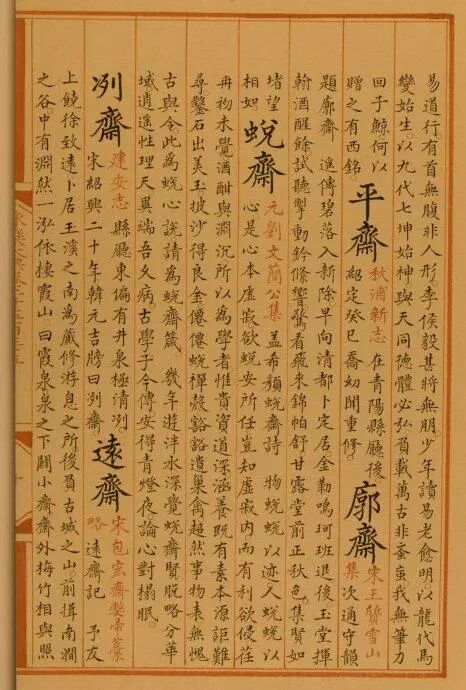 易道行有首無腹非人形李侯毅甚時無朋少年讀易老愈明以龍代馬
變始生以九代七坤始神與天同德體必弘負載萬古非蚉䖟我無筆力
回子鯨何以
贈之有西銘
平齋
秋浦新志 在青陽縣廳後
紹定癸巳喬幼聞重修
廓齋
宋王質雪山
集 次通守韻
題廓齋 遙傳碧落入新除早向清都卜定居金勒鳴珂班退後玉堂揮
翰酒醒餘試聽掣動鈴條響驚看飛來錦帕舒甘露堂前正秋色集賢如
堵望
相如
蛻齋
元劉文簡公集 盖希顏蛻齋詩 物蛻蛻以迹人蛻蛻以
心是心本虛寂欲蛻安所任豈知虛寂內而有利欲侵荏
冉初未覺酒酣與淵沉所以為學者惟貴資道深涵養既有素本源詎難
尋鑿石出美玉披沙得良金僊僊蛻禪殼谿谿遺巢禽超然事物表無愧
古與今此為蛻心說請為蛻齋箴 幾年遊泮水深覺蛻齋賢既略分華
域逍遙性理天異端吾久病古學子今傳安得青燈夜論心對榻眠
冽齋
建安志 縣廳東偏有井泉極清冽
宋紹興二十年韓元吉牓曰冽齋
遠齋
宋包宏齋弊帚藁
略 遠齋記 予友
上饒徐敎遠卜居玉溪之南為藏修游息之所後負古城之山前揖南澗
之谷中有淵然一泓依棲霞山曰霞泉泉之下闢小齋齋外梅竹相與照